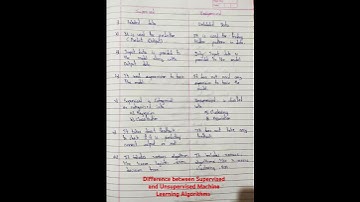 Supervised Unsupervised
Labeled data Unlabeled Data
It is used for prediction It is used for finding
(Predict Output) hidden patterns in data
Input data is provided to Only input data is
the model along with provided to the model
Output data
It need supervision to train It does not need any
the model supervision to train
the model
Supervised is Categorised Unsupervised is classified
in categorised with into
a) Regression a) Clustering
b) Classification b) Association
It takes direct feedback It does not take any
to check if it is predicting feedback
correct output or not
It includes various algorithms It includes various
Difference between Supervised
and Unsupervised Machine
Learning Algorithms